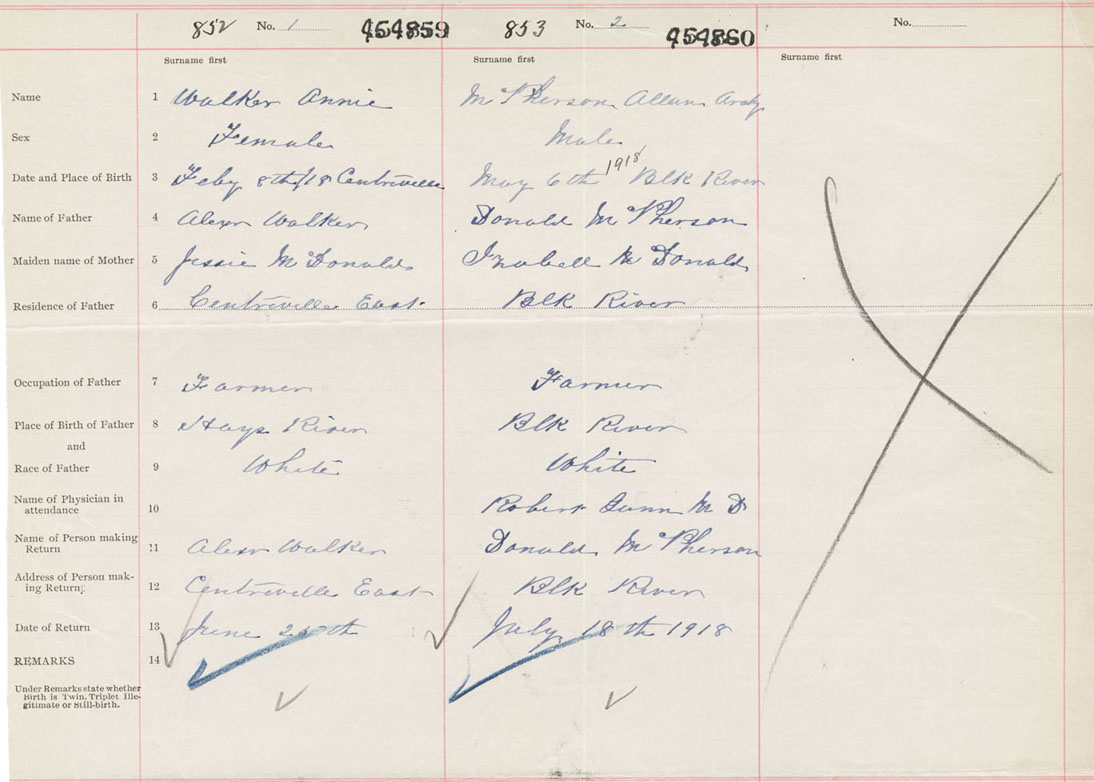 852 No. 1 454859 853 No. 2 454860 No.
Surname first Surname first Surname first
Name 1 Walker Annie McPherson Allan
Sex 2 Female Male
Date and Place of Birth 3 Feby 8th/18 Centreville May 6th 1918 Blk River
Name of Father 4 Alexr Walker Donald McPherson
Maiden name of Mother 5 Jessie McDonald Isabell McDonald
Residence of Father 6 Centreville East Blk River
Occupation of Father 7 Farmer Farmer
Place of Birth of Father 8 Hays River Blk River
and
Race of Father 9 White White
Name of Physician in
attendance 10 Robert M D
Name of Person making
Return 11 Alexr Walker Donald McPherson
Address of Person mak-
ing Return 12 Centreville East Blk River
Date of Return 13 June July 18th 1918
REMARKS 14
Under Remarks state whether
Birth is Twin, Triplet Ille-
gitimate or Still-birth.